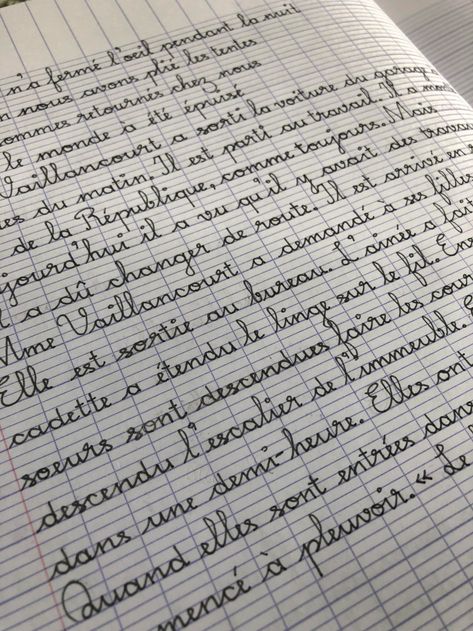 n'a fermé l'oeil pendant la nuit
n nous avons plié les tentes
sommes retournés chez nous
le monde a été épuisé
Vaillancourt a sorti la voiture du garag
es du matin. Il est parti au travail. Il a
de la République, comme toujours. Mais
ujourd'hui il a vu qu'il y avait des travau
il a dû changer de route. Il est arrivé en r
Mme Vaillancourt a demandé à ses filles
Elle est sortie au bureau. L'aînée a fait
cadette a étendu le linge sur le fil. En
soeurs sont descendues faire les cour
descendu l'escalier de l'immeuble.
dans une demi-heure. Elles ont
Quand elles sont entrées dans
mencé à pleuvoir. « Le